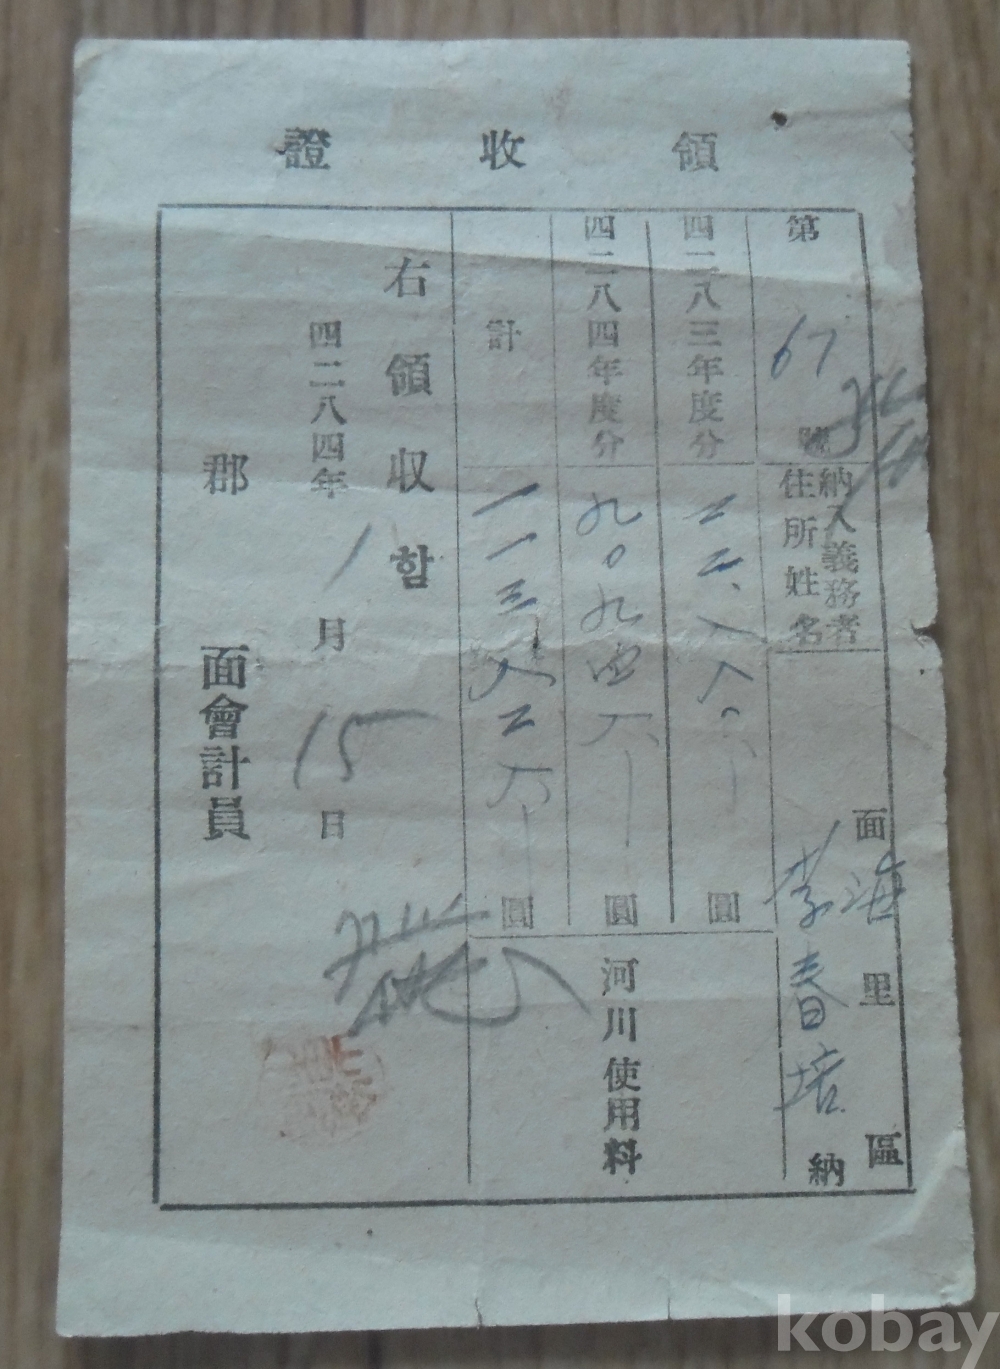 領收證
第67號
納入義務者
住所姓名
面 海 里 區
李春培 納
四二八三年度分
二二、八八〇 圓
四二八四年度分
九〇九四六 圓
計
一一三八二六 圓
河川使用料
右領収함
四二八四年1月15日
郡 面會計員
kobay